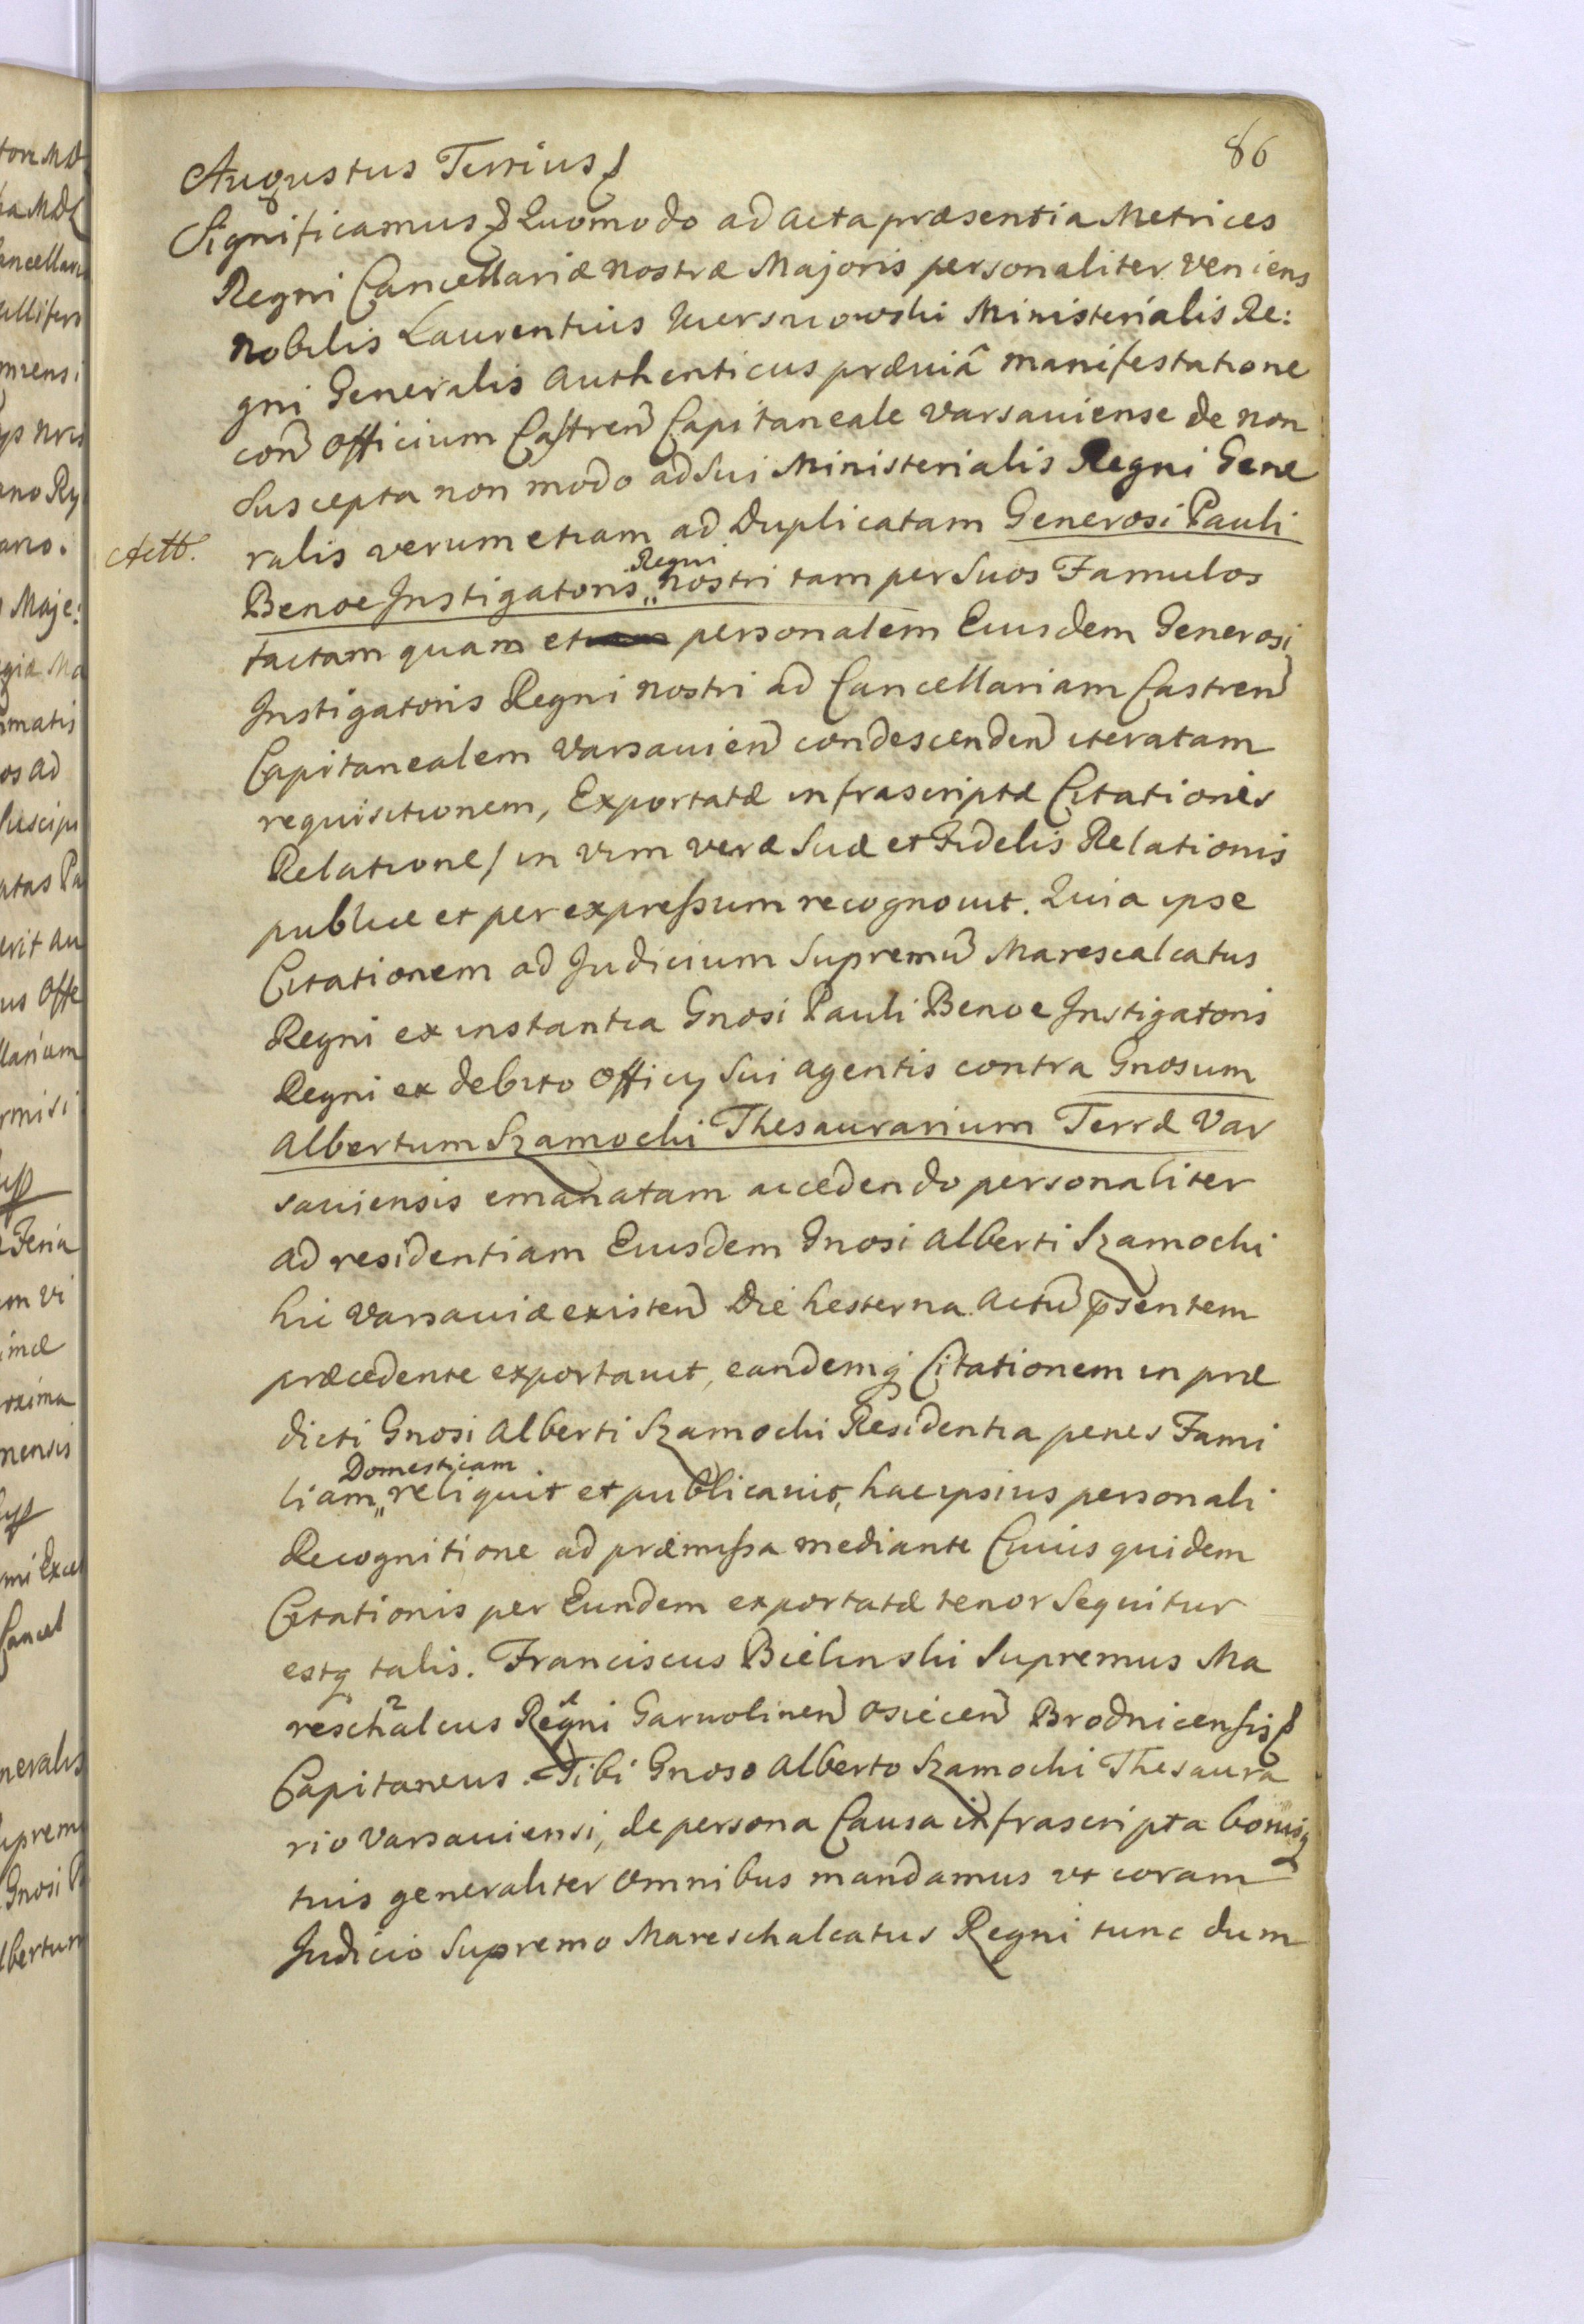 86
Augustus Tertius
Significamus Quomodo ad acta præsentia Metrices
Regni Cancellariæ nostræ Majoris personaliter veniens
nobilis Laurentius Ministerialis Re:
gni Generalis authenticus præviâ manifestatione
con Officium Castren Capitaneale varsaviense de non
suscepta non modo ad sui Ministerialis Regni Gene
Actt. ralis verum etiam ad Duplicatam Generosi Pauli
Benoe Instigatoris „ Regni nostri tam per suos Famulos
factam quam et personalem Eiusdem Generosi
Instigatoris Regni nostri ad Cancellariam Castren
Capitanealem varsavien condescenden iteratam
requisitionem, Exportatæ infrascriptæ Citationis
Relatione/ in vim veræ suæ et Fidelis Relationis
publice et per expressum recognovit. Quia ipse
Citationem ad Judicium Supremu Marescalcatus
Regni ex instantia Gnosi Pauli Benoe Instigatoris
Regni ex debito Officy sui agentis contra Gnosum
Albertum Szamocki Thesaurarium Terræ Var
saviensis emanatam accedendo personaliter
ad residentiam Eiusdem Gnosi Alberti Szamocki
hic Varsaviæ existen Die hesterna actu psentem
præcedente exportavit, eandemq Citationem in præ
dicti Gnosi Alberti Szamocki Residentia penes Fami
liam „ Domesticam reliquit et publicavit, hac ipsius personali
Recognitione ad præmissa mediante Cuius quidem
Citationis per Eundem exportatæ tenor sequitur
estq talis. Franciscus Bielinski Supremus Ma
reschalcus Regni Garwolinen Osiecen Brodnicensis
Capitaneus. Tibi Gnoso Alberto Szamocki Thesaura
rio varsaviensi, de persona Causa infrascripta bonisq
tuis generaliter omnibus mandamus ut coram
Judicio Supremo Mareschalcatus Regni tunc dum